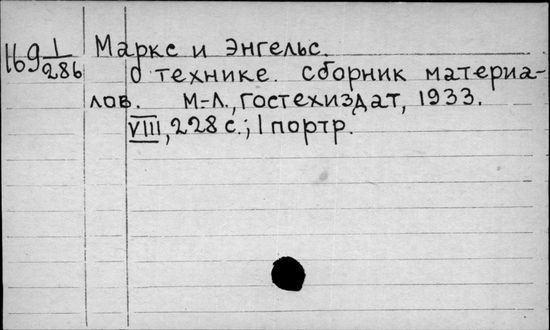 169 1/286
Маркс и Энгельс.
О технике. Сборник материа-
лов. М-Л., Гостехиздат, 1933.
VIII, 228 с.; 1 портр.